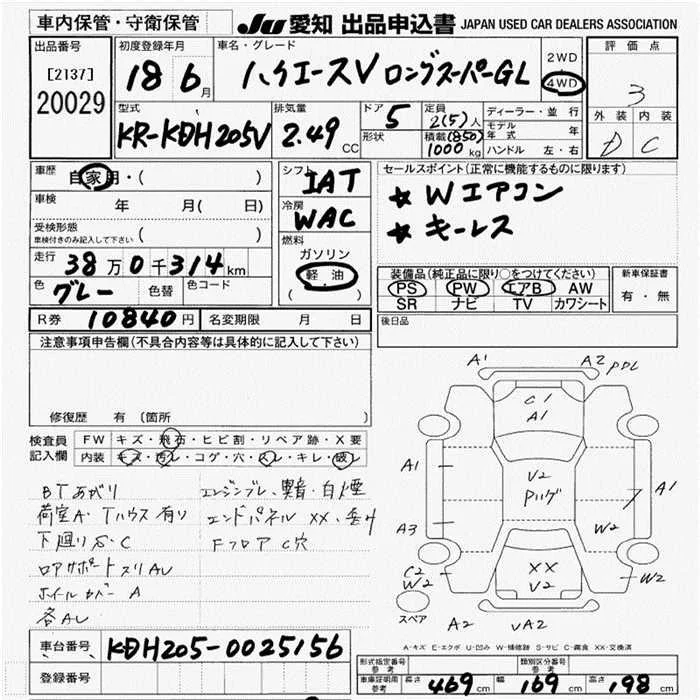 車内保管・守衛保管
JU 愛知 出品申込書 JAPAN USED CAR DEALERS ASSOCIATION
出品番号
[2137]
20029
初度登録年月
18 6月
車名・グレード
ハイエースV ロングスーパーGL
2WD
4WD
評価点
3
外装 内装
D C
型式
KR-KDH205V
排気量
2.49 CC
ドア
5
形状
定員
2(5)人
積載(850)
1000kg
ディーラー・並行
モデル年式 年
ハンドル 左・右
車歴 自家用・( )
車検 年 月( 日)
受検形態
車検付きのみ記入して下さい ( )
走行 38万0千314km
色 グレー 色替 色コード
シフト
IAT
冷房
WAC
燃料
ガソリン
軽油
( )
セールスポイント(正常に機能するものに限ります)
★ Wエアコン
★ キーレス
装備品(純正品に限り○をつけてください)
PS PW エアB AW
SR ナビ TV カワシート
新車保証書
有・無
R券 10840円 名変期限 月 日
後日品
注意事項申告欄(不具合内容等は具体的に記入して下さい)
修復歴 有 (箇所 )
検査員記入欄
FW キズ・飛石・ヒビ割・リペア跡・X要
内装 キズ・汚レ・コゲ・穴・スレ・キレ・破レ
BTあがり
荷室A・Tハウス有り
下廻りS・C
ロアサポートスリAU
ホイルカバーA
各AU
エンジンブレ、異音・白煙
エンドパネル XX、歪み
Fフロア C穴
A1 A2 PDL
C1
A1
A1
V2
Pリング
A1
A3
W2
C2
W2
XX
V2
W2
スペア
A2 VA2
A-キズ E-エクボ U-凹み W-補修跡 S-サビ C-腐食 XX-交換済
車台番号 KDH205-0025156
登録番号
形式指定番号 参考
類別区分番号 参考
車庫証明用 参考 長さ 469cm 幅 169cm 高さ 198cm